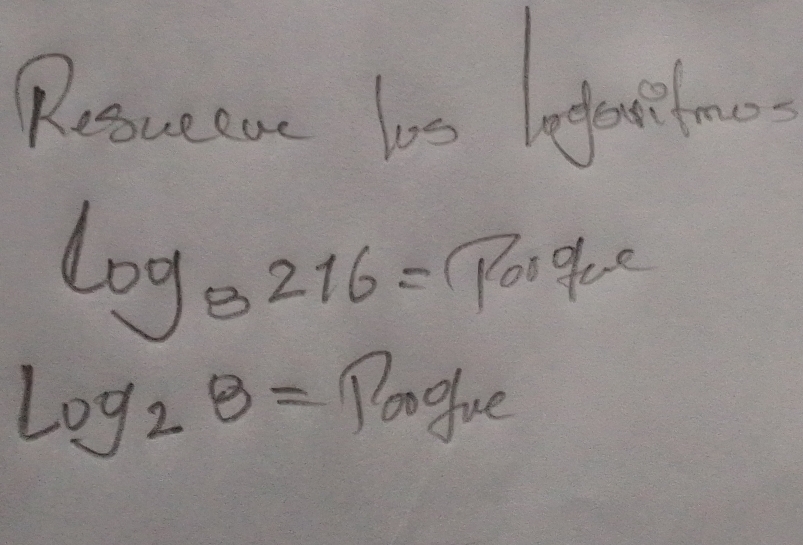 Resuelve los logaritmos
Log₈ 216 = Porque
Log₂ 8 = Porque